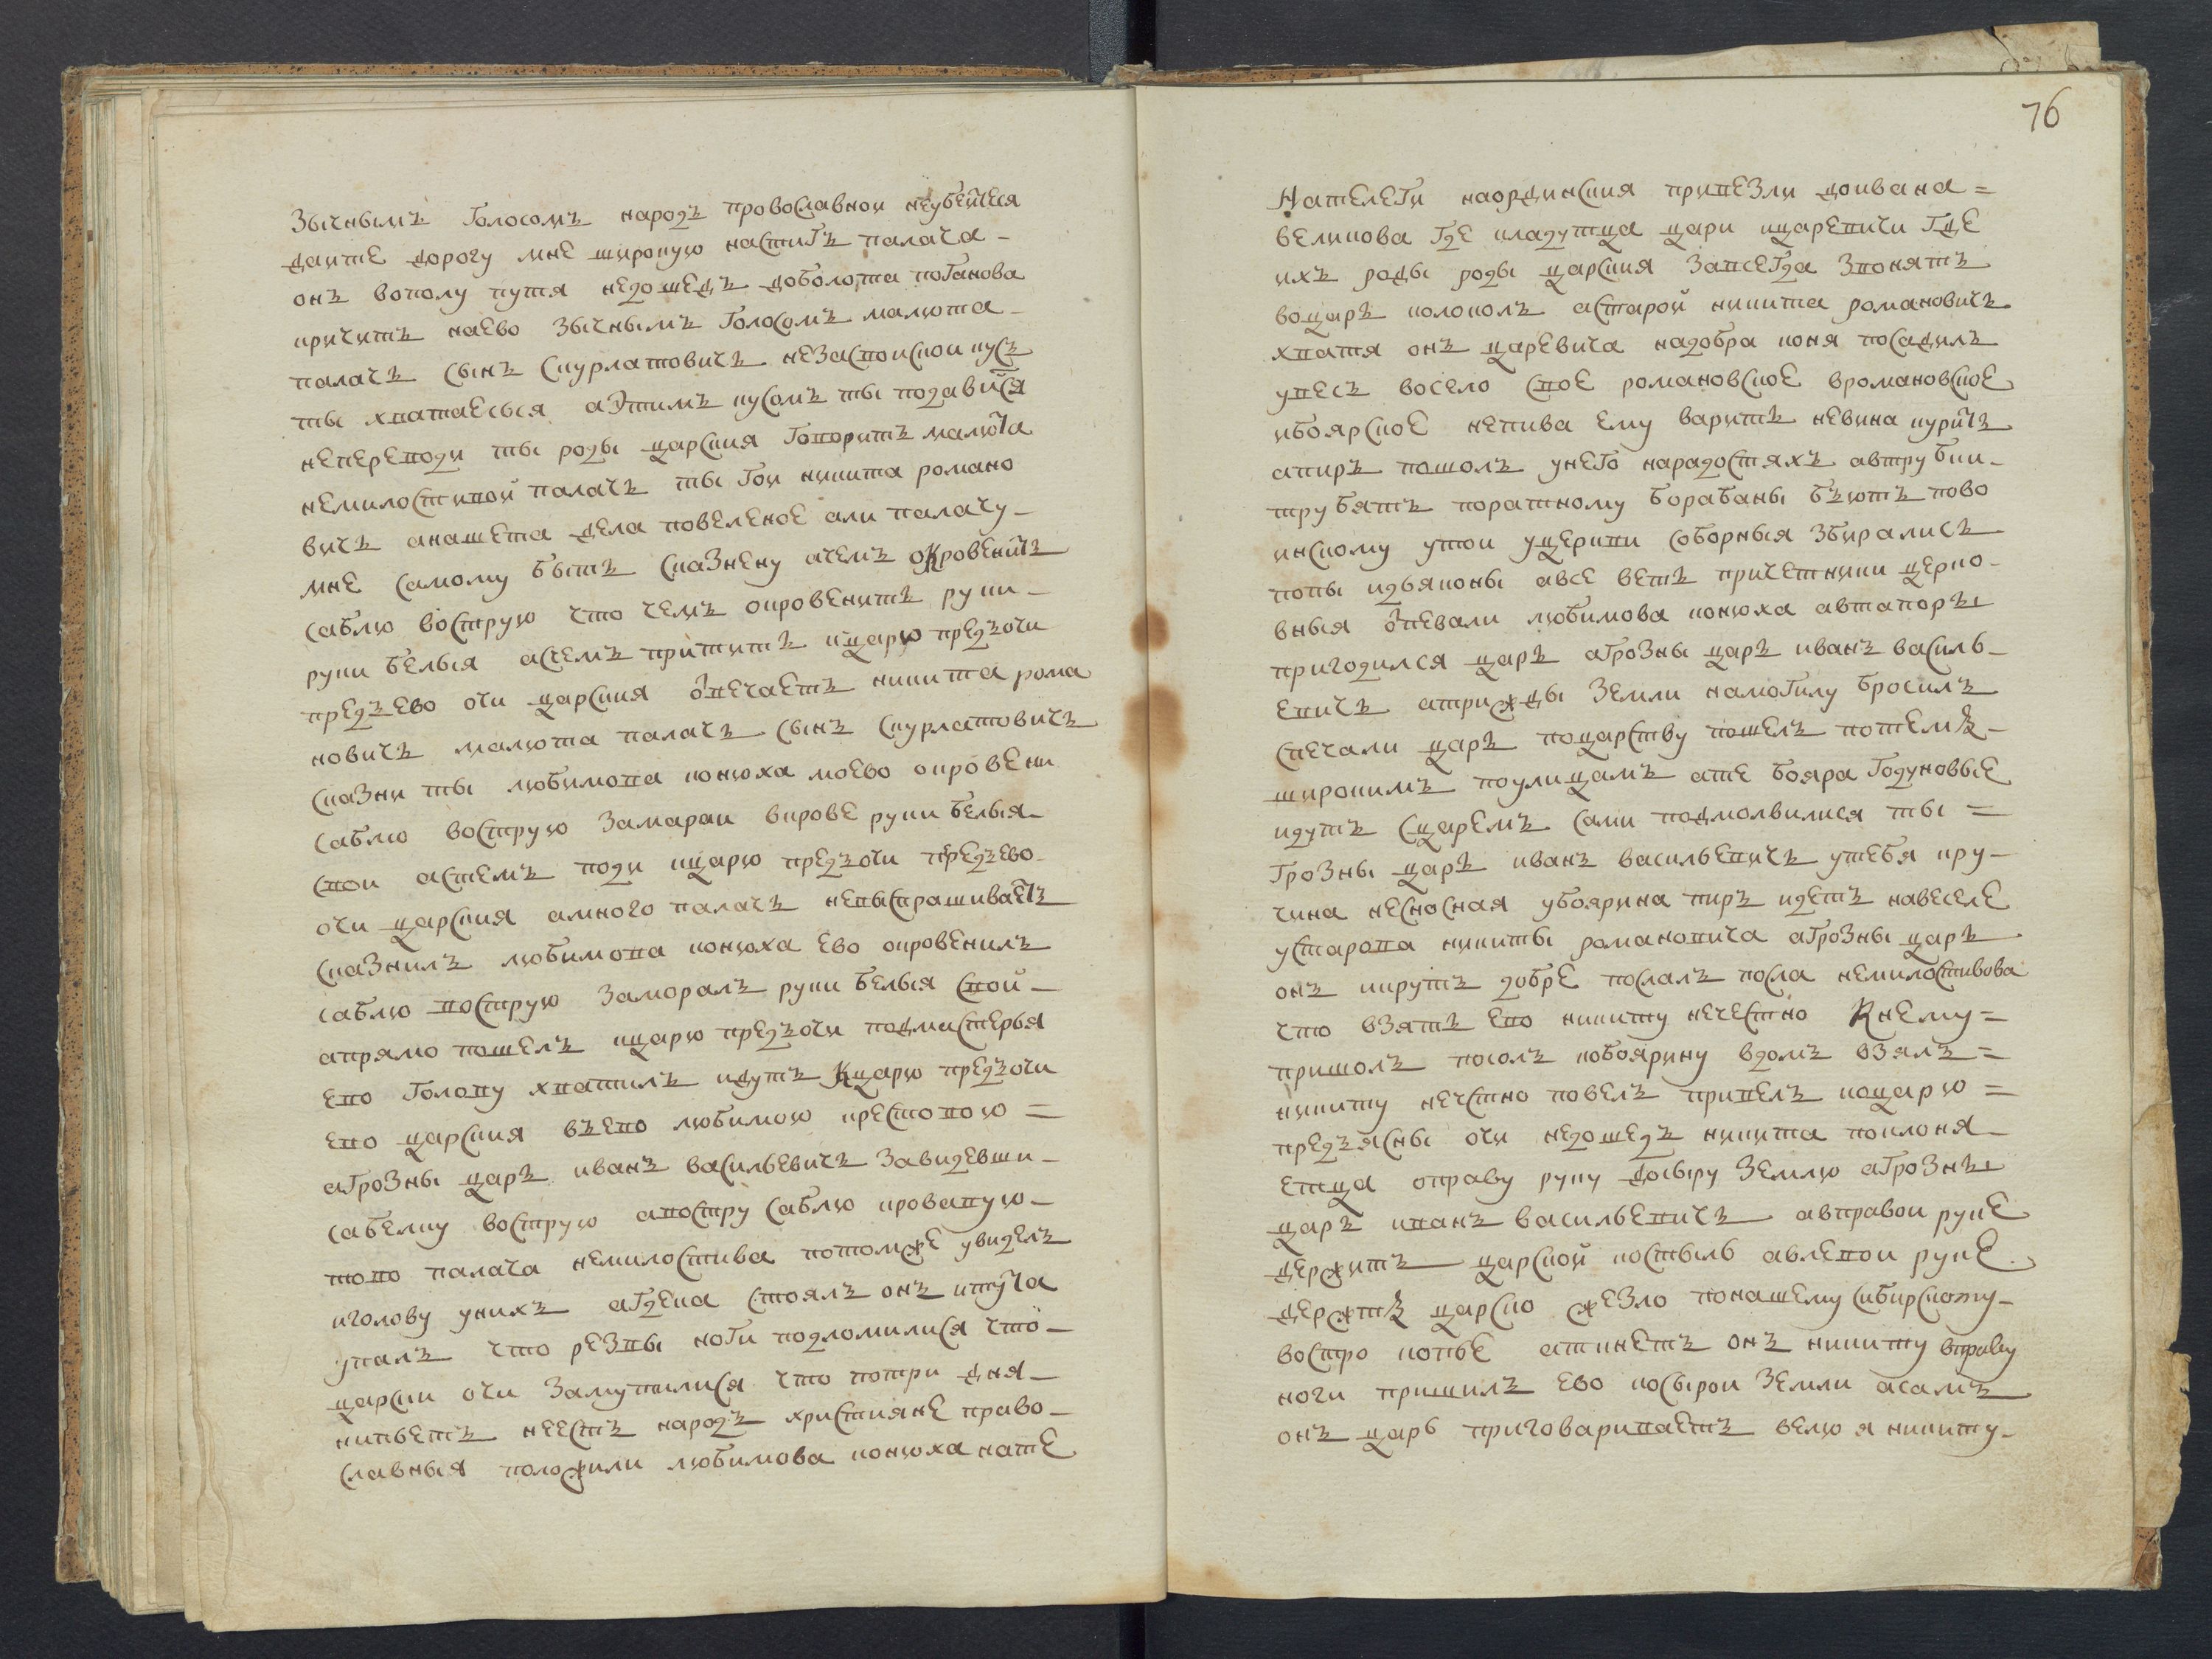 зычнымъ голосомъ народъ провославнои неубеитеся
даите дорогу мне широкую настигъ палача
онъ вополу путя недошедъ доболота поганова
кричитъ наево зычнымъ голосомъ малюта
палачъ сынъ скурлатовичь незасвоиской кусъ
ты хватаесься аэтимъ кусомъ ты подависся
непереводи ты роды царския говоритъ малюта
немилостивой палачь ты гои никита романо
вичь анашета дела повеленое али палачу
мне самому быть сказнену ачемъ окровенить
саблю вострую что чемъ окровенить руки
руки белыя асчемъ притить кцарю предъочи
предъево очи царския отвечаетъ никита рома
новичь малюта палачь сынъ скурлатовичь
сказни ты любимова конюха моево окровени
саблю вострую замараи вкрове руки белыя
свои астемъ поди кцарю предъочи предъево
очи царския амного палачь невыспрашиваетъ
сказнилъ любимова конюха ево окровенилъ
саблю вострую заморалъ руки белыя свой
апрямо пошелъ кцарю предъочи подмастерья
ево голову хватилъ идутъ кцарю предъочи
ево царския въево любимою крестовою
агрозны царь иванъ васильевичь завидевши
сабелку вострую авостру саблю кровавую
тово палача немилостива потомже увиделъ
иголову унихъ агдека стоялъ онъ итута
упалъ что резвы ноги подломилися что
царски очи замутилися что потри дня
нипьетъ неестъ народъ християне право
славныя положили любимова конюха нате
76
Нателеги наординския привезли доивана
великова где кладутца цари ицаревичи где
ихъ роды роды царския завсегда звонятъ
воцарь колоколъ астарой никита романовичь
хватя онъ царевича надобра коня посадилъ
увесъ восело свое романовское вромановское
ибоярское непива ему варить невина курить
апиръ пошолъ унего нарадостяхъ автрубки
трубятъ поратному борабаны бъютъ пово
инскому утои уцеркви соборныя збиралисъ
попы идьяконы авсе веть причетники церко
вныя отпевали любимова конюха автапоръ
пригодился царь агрозны царь иванъ василь
евичь атрижды земли намогилу бросилъ
спечали царь поцарству пошелъ потемъ
широкимъ поулицамъ ате бояра годуновые
идутъ сцаремъ сами подмолвилися ты
грозны царь иванъ васильевичь утебя кру
чина несносная убоярина пиръ идетъ навеселе
устарова никиты романовича агрозны царь
онъ икрутъ добре послалъ посла немилостивова
что взять ево никиту нечестно кнему
пришолъ посолъ кобоярину вдомъ взялъ
никиту нечстно повелъ привелъ коцарю
предъясны очи недошедъ никита поклоня
етца оправу руку досыру землю агрознъ
царь иванъ васильевичь авправои руке
держитъ царской костыль авлевои руке
держтъ царско жезло понашему сибирскому
востро копье аткнетъ онъ никиту вправу
ноги пришилъ ево косырои земли асамъ
онъ царь приговариваетъ велю я никиту